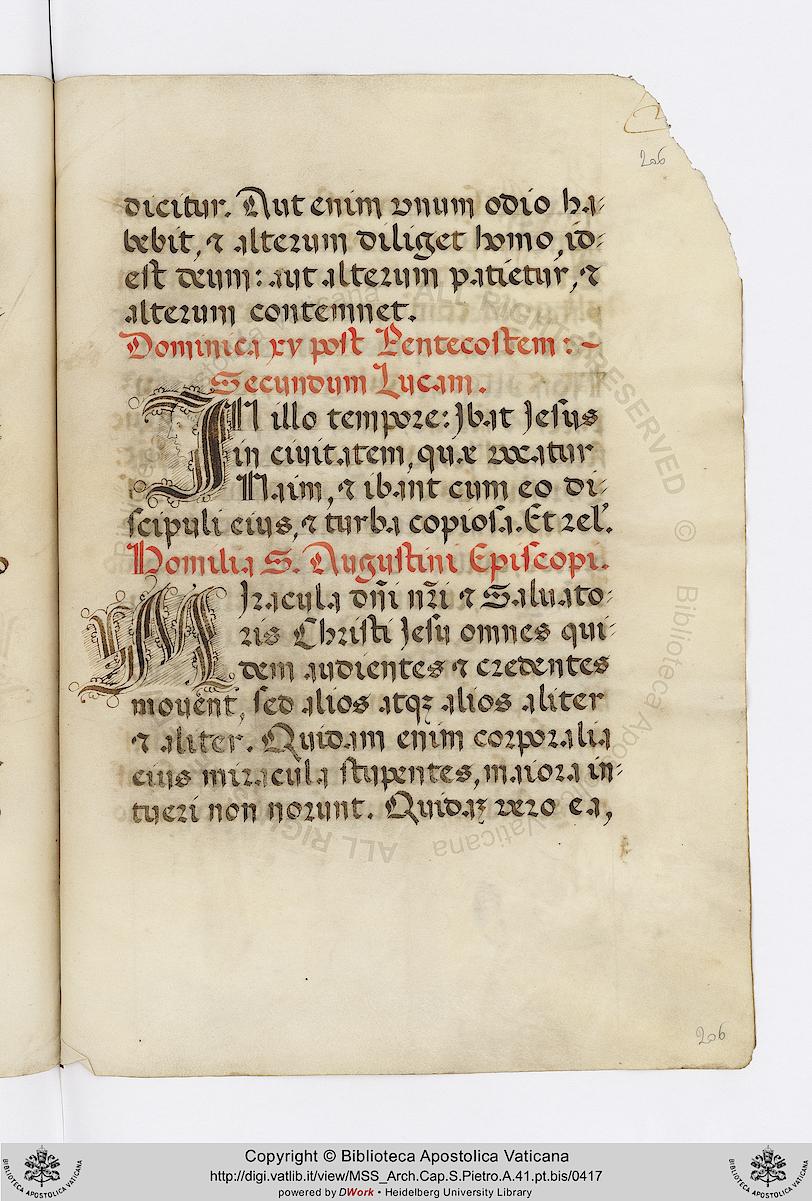 206
dicitur. Aut enim vnum odio ha-
bebit, & alterum diliget homo, id-
est deum: aut alterum patietur, &
alterum contemnet.
Dominica xv post Pentecostem :~
Secundum Lucam.
IN illo tempore: Ibat Jesus
in ciuitatem, quæ vocatur
Naim, & ibant cum eo di-
scipuli eius, & turba copiosa. Et rel.
Homilia S. Augustini Episcopi.
Miracula dñi nr̃i & Saluato-
ris Christi Jesu omnes qui-
dem audientes & credentes
mouent, sed alios atqꝫ alios aliter
& aliter. Quidam enim corporalia
eius miracula stupentes, maiora in-
tueri non norunt. Quidaꝫ vero ea,
206
ALL RIGHTS RESERVED © Biblioteca Apostolica Vaticana
Copyright © Biblioteca Apostolica Vaticana
http://digi.vatlib.it/view/MSS_Arch.Cap.S.Pietro.A.41.pt.bis/0417
powered by DWork • Heidelberg University Library
BIBLIOTECA APOSTOLICA VATICANA
BIBLIOTECA APOSTOLICA VATICANA